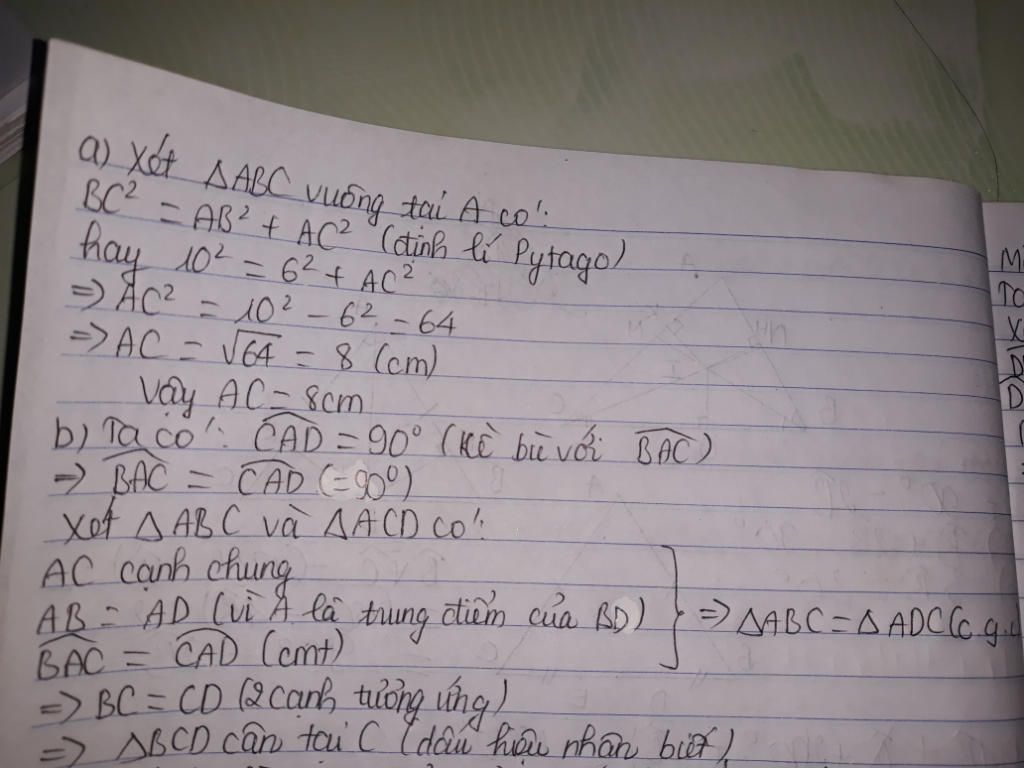 a) Xét ΔABC vuông tại A có:
BC² = AB² + AC² (định lí Pytago)
hay 10² = 6² + AC²
=> AC² = 10² - 6² = 64
=> AC = √64 = 8 (cm)
Vậy AC = 8cm
b) Ta có: \widehat{CAD} = 90° (kề bù với \widehat{BAC})
=> \widehat{BAC} = \widehat{CAD} (=90°)
Xét ΔABC và ΔACD có:
AC cạnh chung
AB = AD (vì A là trung điểm của BD)
\widehat{BAC} = \widehat{CAD} (cmt)
=> ΔABC = ΔADC (c.g.
=> BC = CD (2 cạnh tưởng ứng)
=> ΔBCD cân tại C (dấu hiệu nhận biết)